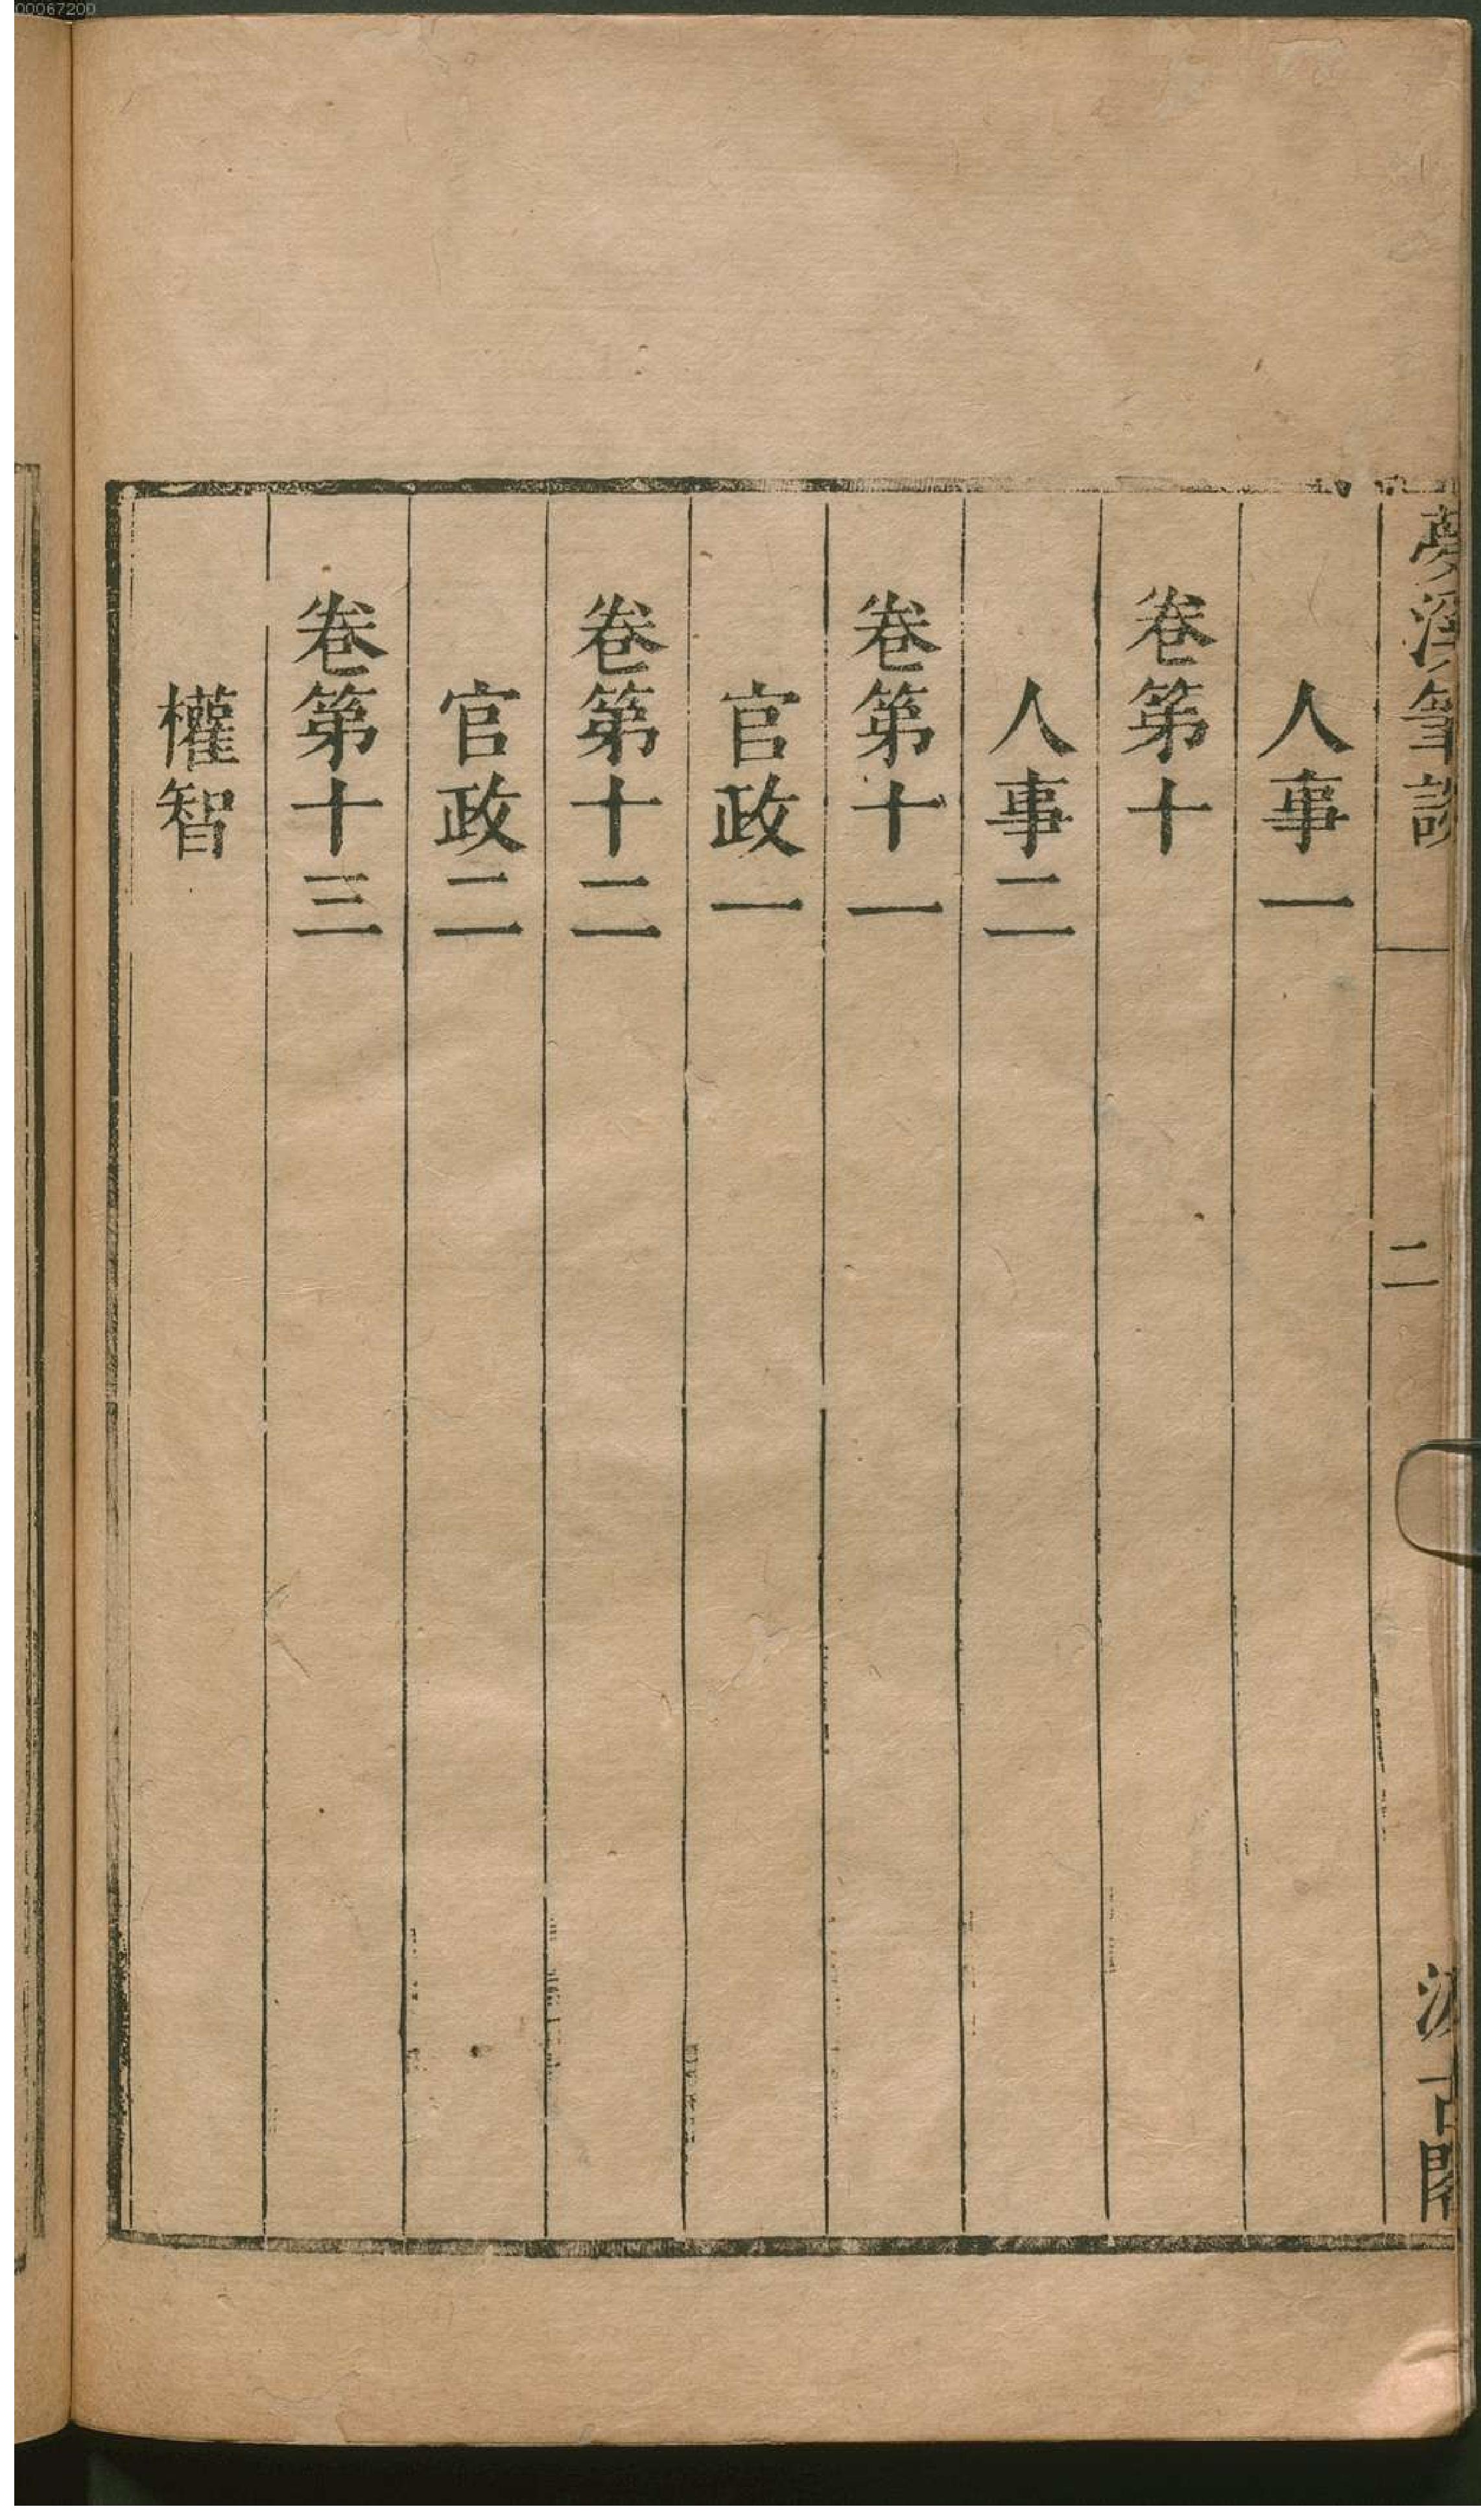 夢溪筆談
二
汲古閣
人事一
卷第十
人事二
卷第十一
官政一
卷第十二
官政二
卷第十三
權智
00067200